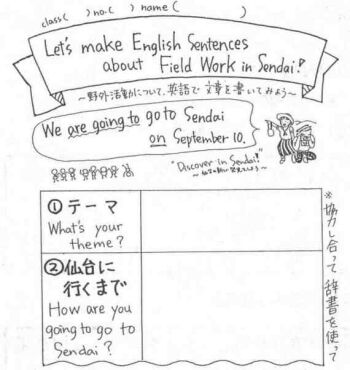 class( ) no.( ) name ( )
Let's make English Sentences
about "Field Work in Sendai!"
～野外活動について、英語で文章を書いてみよう～
We are going to go to Sendai
on September 10.
"Discover in Sendai!"
①テーマ
What's your
theme?
②仙台に
行くまで
How are you
going to go to
Sendai?
※協力し合って辞書を使って